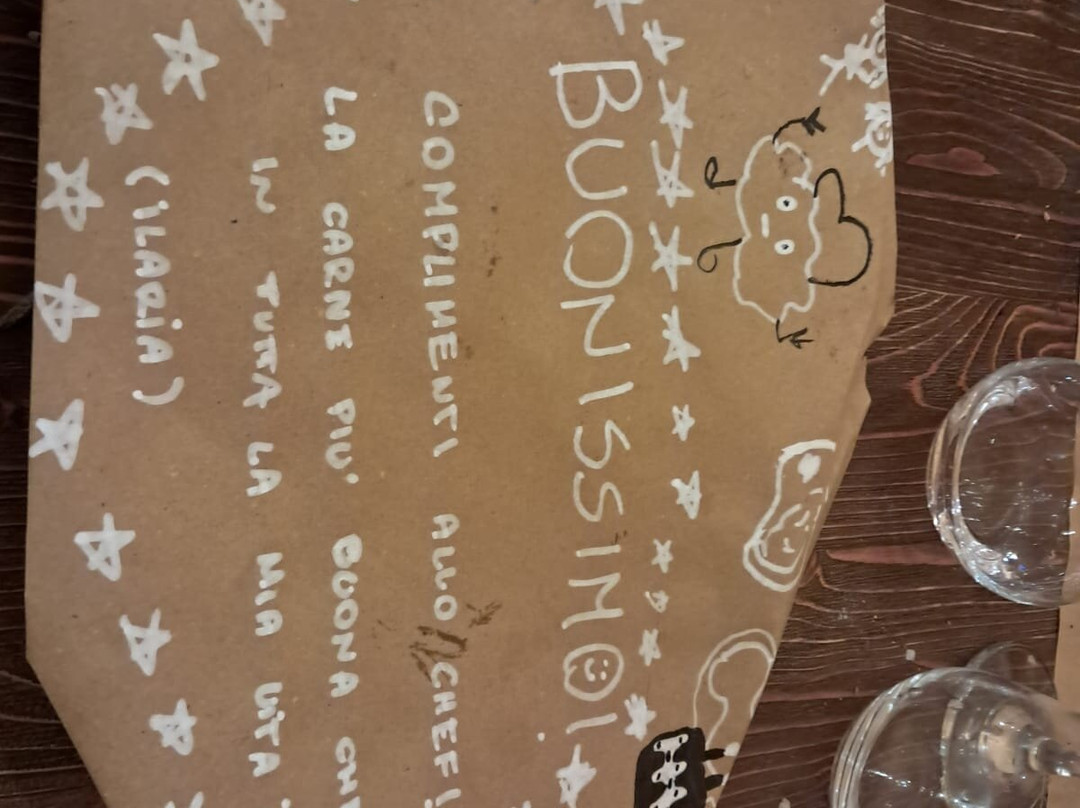 BUONISSIMO!
COMPLIMENTI ALLO CHEF!
LA CARNE PIU' BUONA CHE
IN TUTTA LA MIA VITA
(ILARIA)